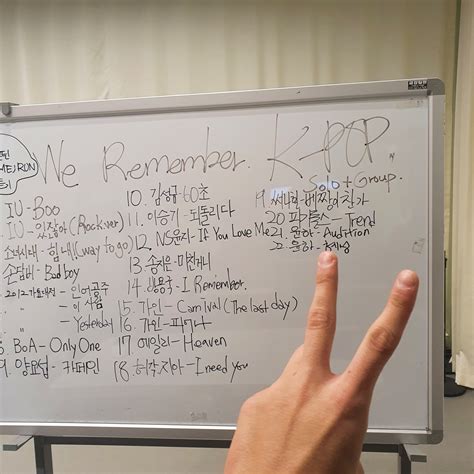 We Remember. K-POP
Solo + Group.
IU - Boo
IU - (Rock.ver)
소녀시대 - 힘내 (way to go)
손담비 - Bad boy
2012 가요대전 - 인어공주
" - 이 사람
" - Yesterday
8. BoA - Only One
9. 양요섭 - 카페인
10. 김성규 60초
11. 이승기 - 되돌리다
12. NS윤지 - If You Love Me
13. 송지은 - 미친거니
14. 방용국 - I Remember.
15. 가인 - Carnival (The last day)
16. 가인 - 피어나
17. 에일리 - Heaven
18. 허각,지아 - I need you
19. 써니힐 - 베짱이 찬가
20. 피기돌스 - Trend
21. 윤하 - Audition
22. 윤하 -